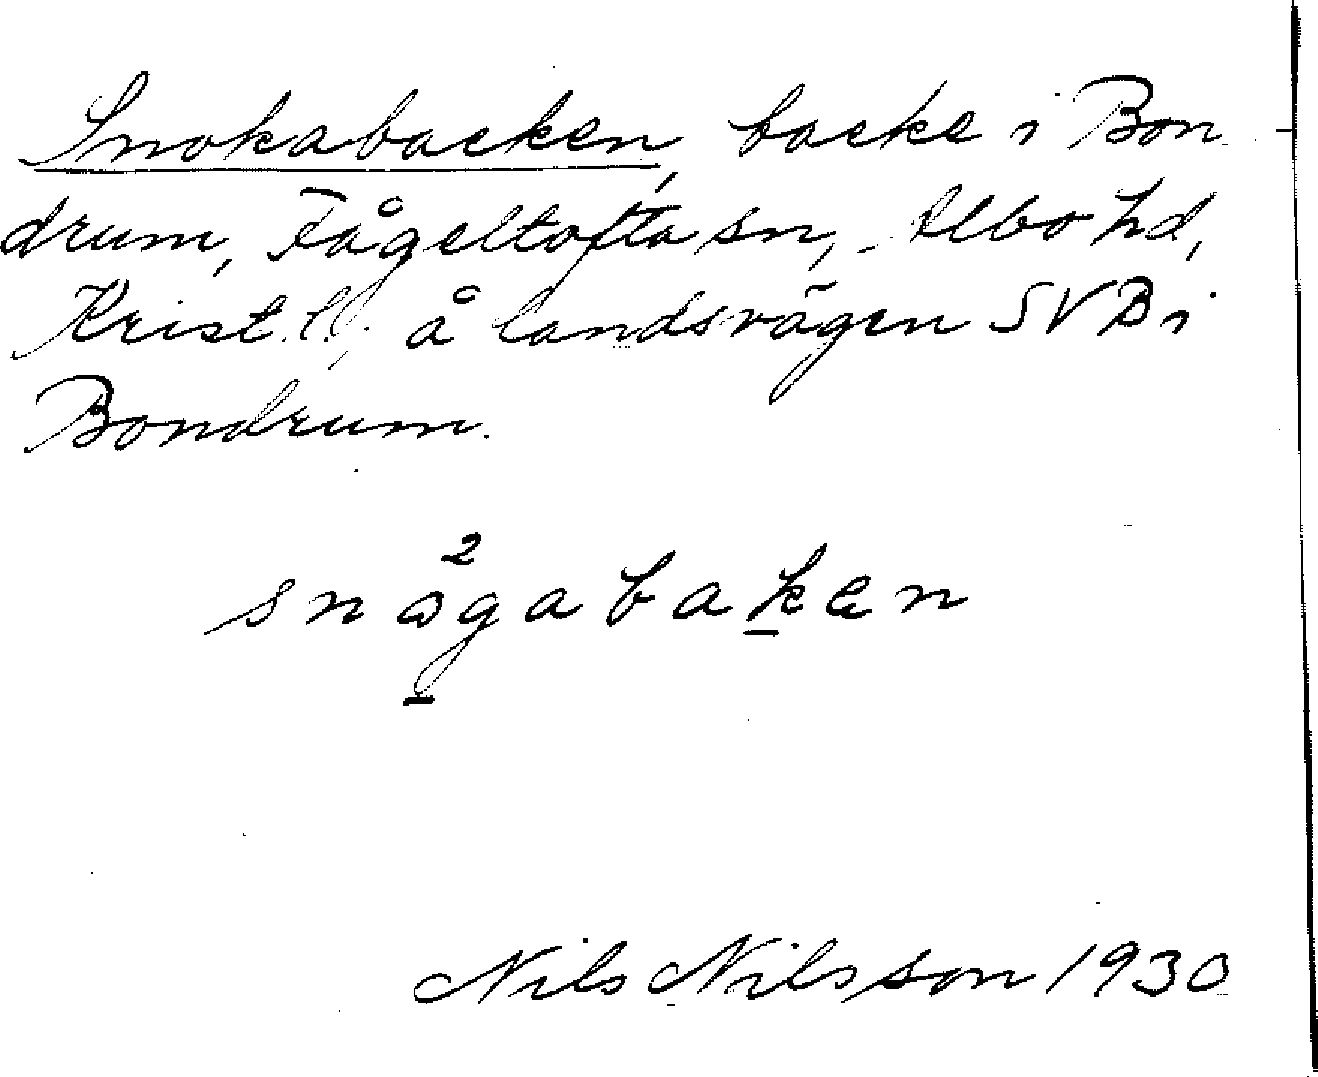 Snokabacken, backe i Bon-
drum, Fågeltofta sn, Albo hd,
Krist. l., å landsvägen SV B i
Bondrum.
2
snågabaken
Nils Nilsson 1930